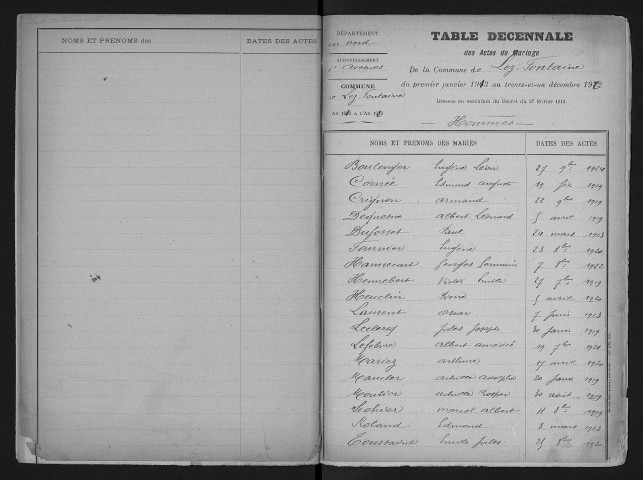 NOMS ET PRENOMS des
DATES DES ACTES
DÉPARTEMENT
du Nord
ARRONDISSEMENT
d'Avesnes
COMMUNE
de Lez-Fontaine
TABLE DECENNALE
des Actes de Mariage
De la Commune de Lez-Fontaine
du premier janvier 1913 au trente-et-un décembre 192
Dressée en exécution du Décret du 2 février 1913.
Hommes
NOMS ET PRÉNOMS DES MARIÉS DATES DES ACTES
Boulenger Eugène Léon 27 9bre 1920
Cornée Edmond Auguste 19 1919
Crignon Armand 22 9bre 1919
Dequesne Albert Léonard 5 avril 1919
Dufosset Paul 24 mars 1913
Fournier Eugène 23 8bre 1920
Hannecart Georges Germain 7 8bre 1922
Hennebert Victor Emile 27 7bre 1919
Heuclin 5 avril 1920
Laurent Omar 7 juin 1913
Leclercq Jules Joseph 20 1919
Lefebvre Albert Amédée 19 7bre 1921
Mariez Arthur 17 avril 1920
20 1919
Moutier 30 août 1919
Marcel Albert 11 8bre 1919
Roland Edmond 8 mars 1913
Toussaint Emile Jules 25 8bre 1920